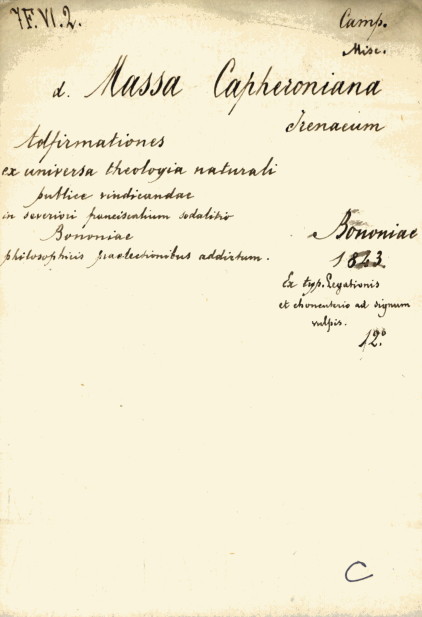 7F.VI.2.
Camp.
Misc.
d. Massa Capheroniana
Irenaeum
Adfirmationes
ex universa theologia naturali
publice vindicandae
in severiori franciscalium sodalitio
Bononiae
philosophicis praelectionibus addictum.
Bononiae
1843
Ex typ. Legationis
et chonenterio ad signum
vulpis.
12.º
C